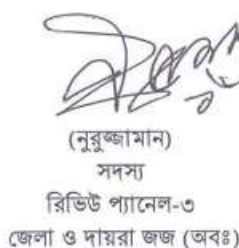 (নুরুজ্জামান)
সদস্য
রিভিউ প্যানেল-৩
জেলা ও দায়রা জজ (অবঃ)